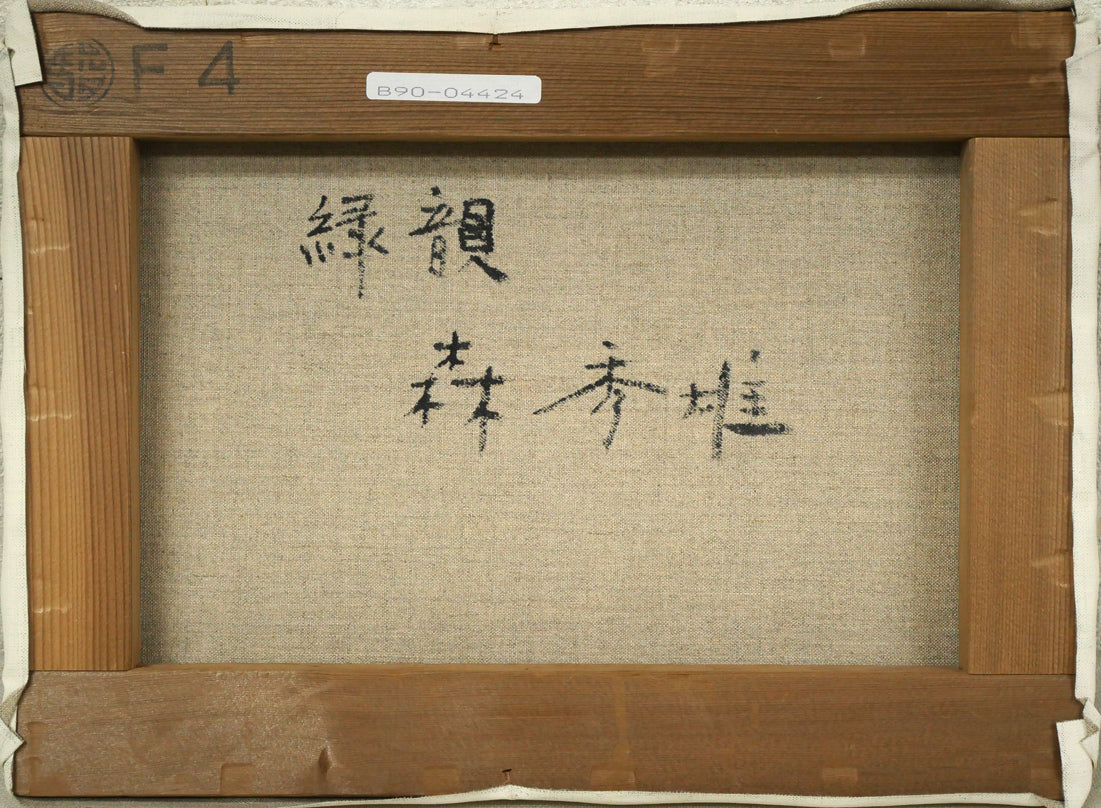 F 4
B90-04424
緑韻
森 秀雄